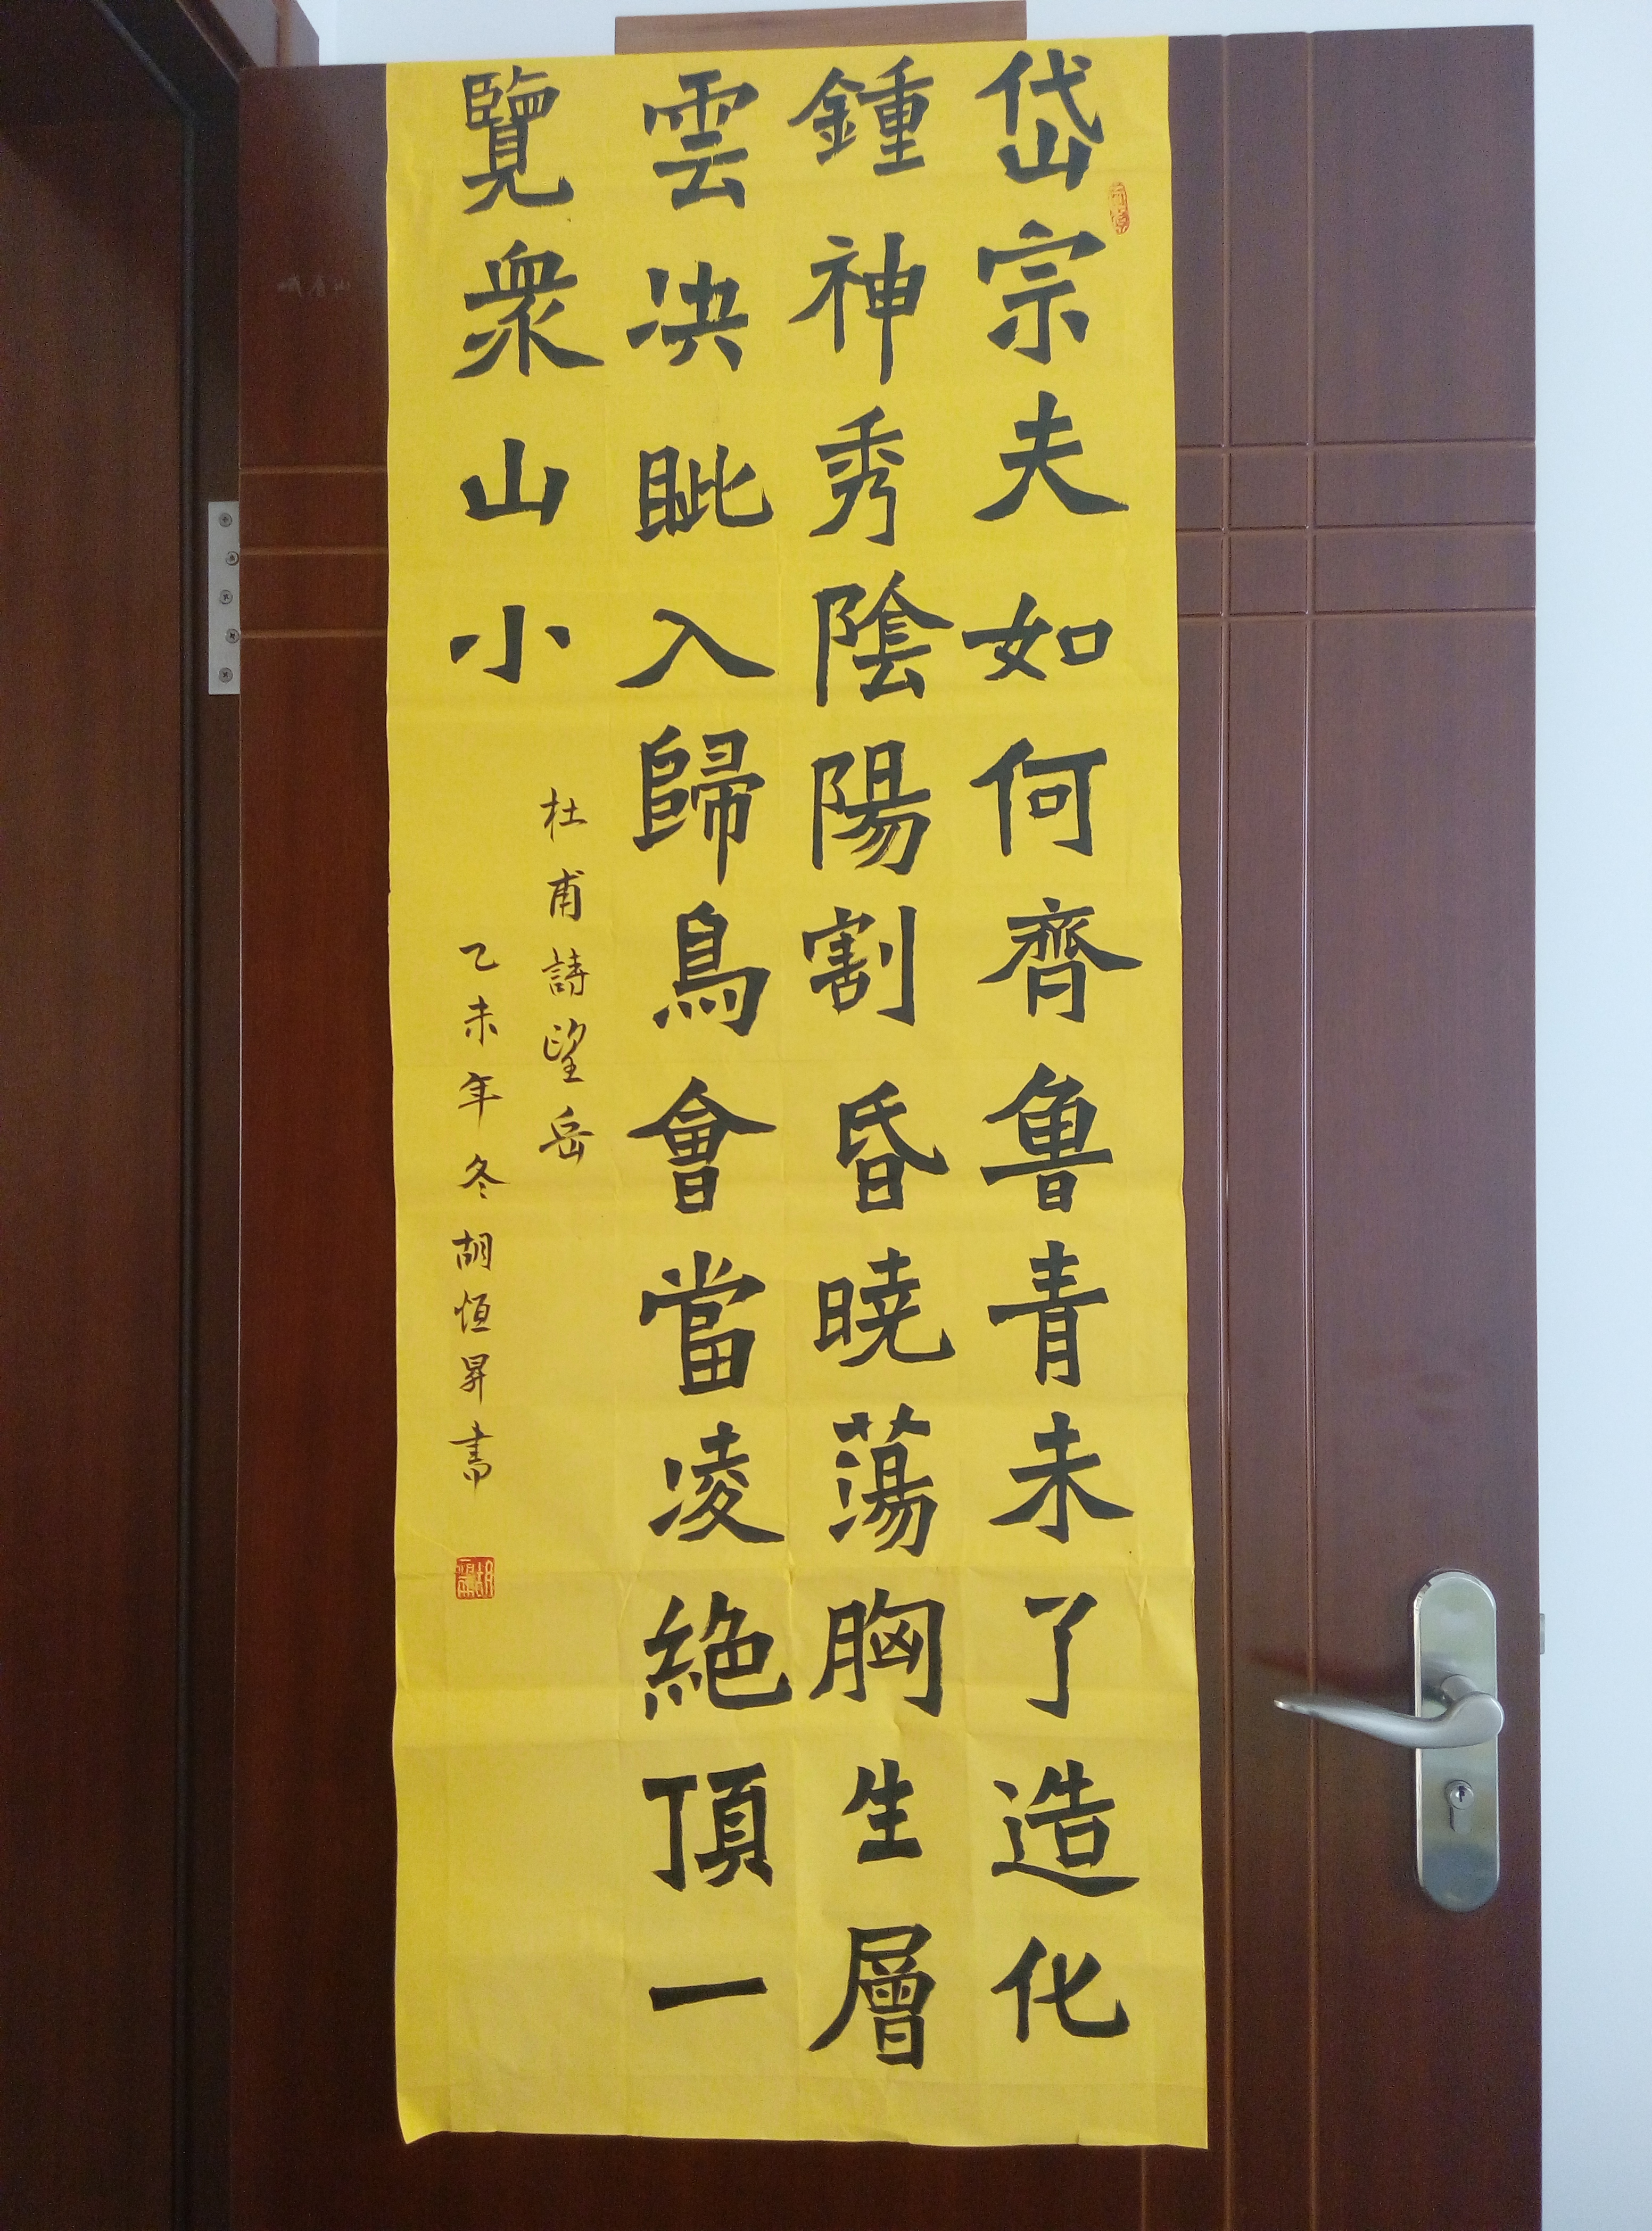 岱宗夫如何齊魯青未了造化
鍾神秀陰陽割昏曉蕩胸生層
雲決眦入歸鳥會當凌絕頂一
覽衆山小
杜甫詩望岳
乙未年冬胡恒昇書